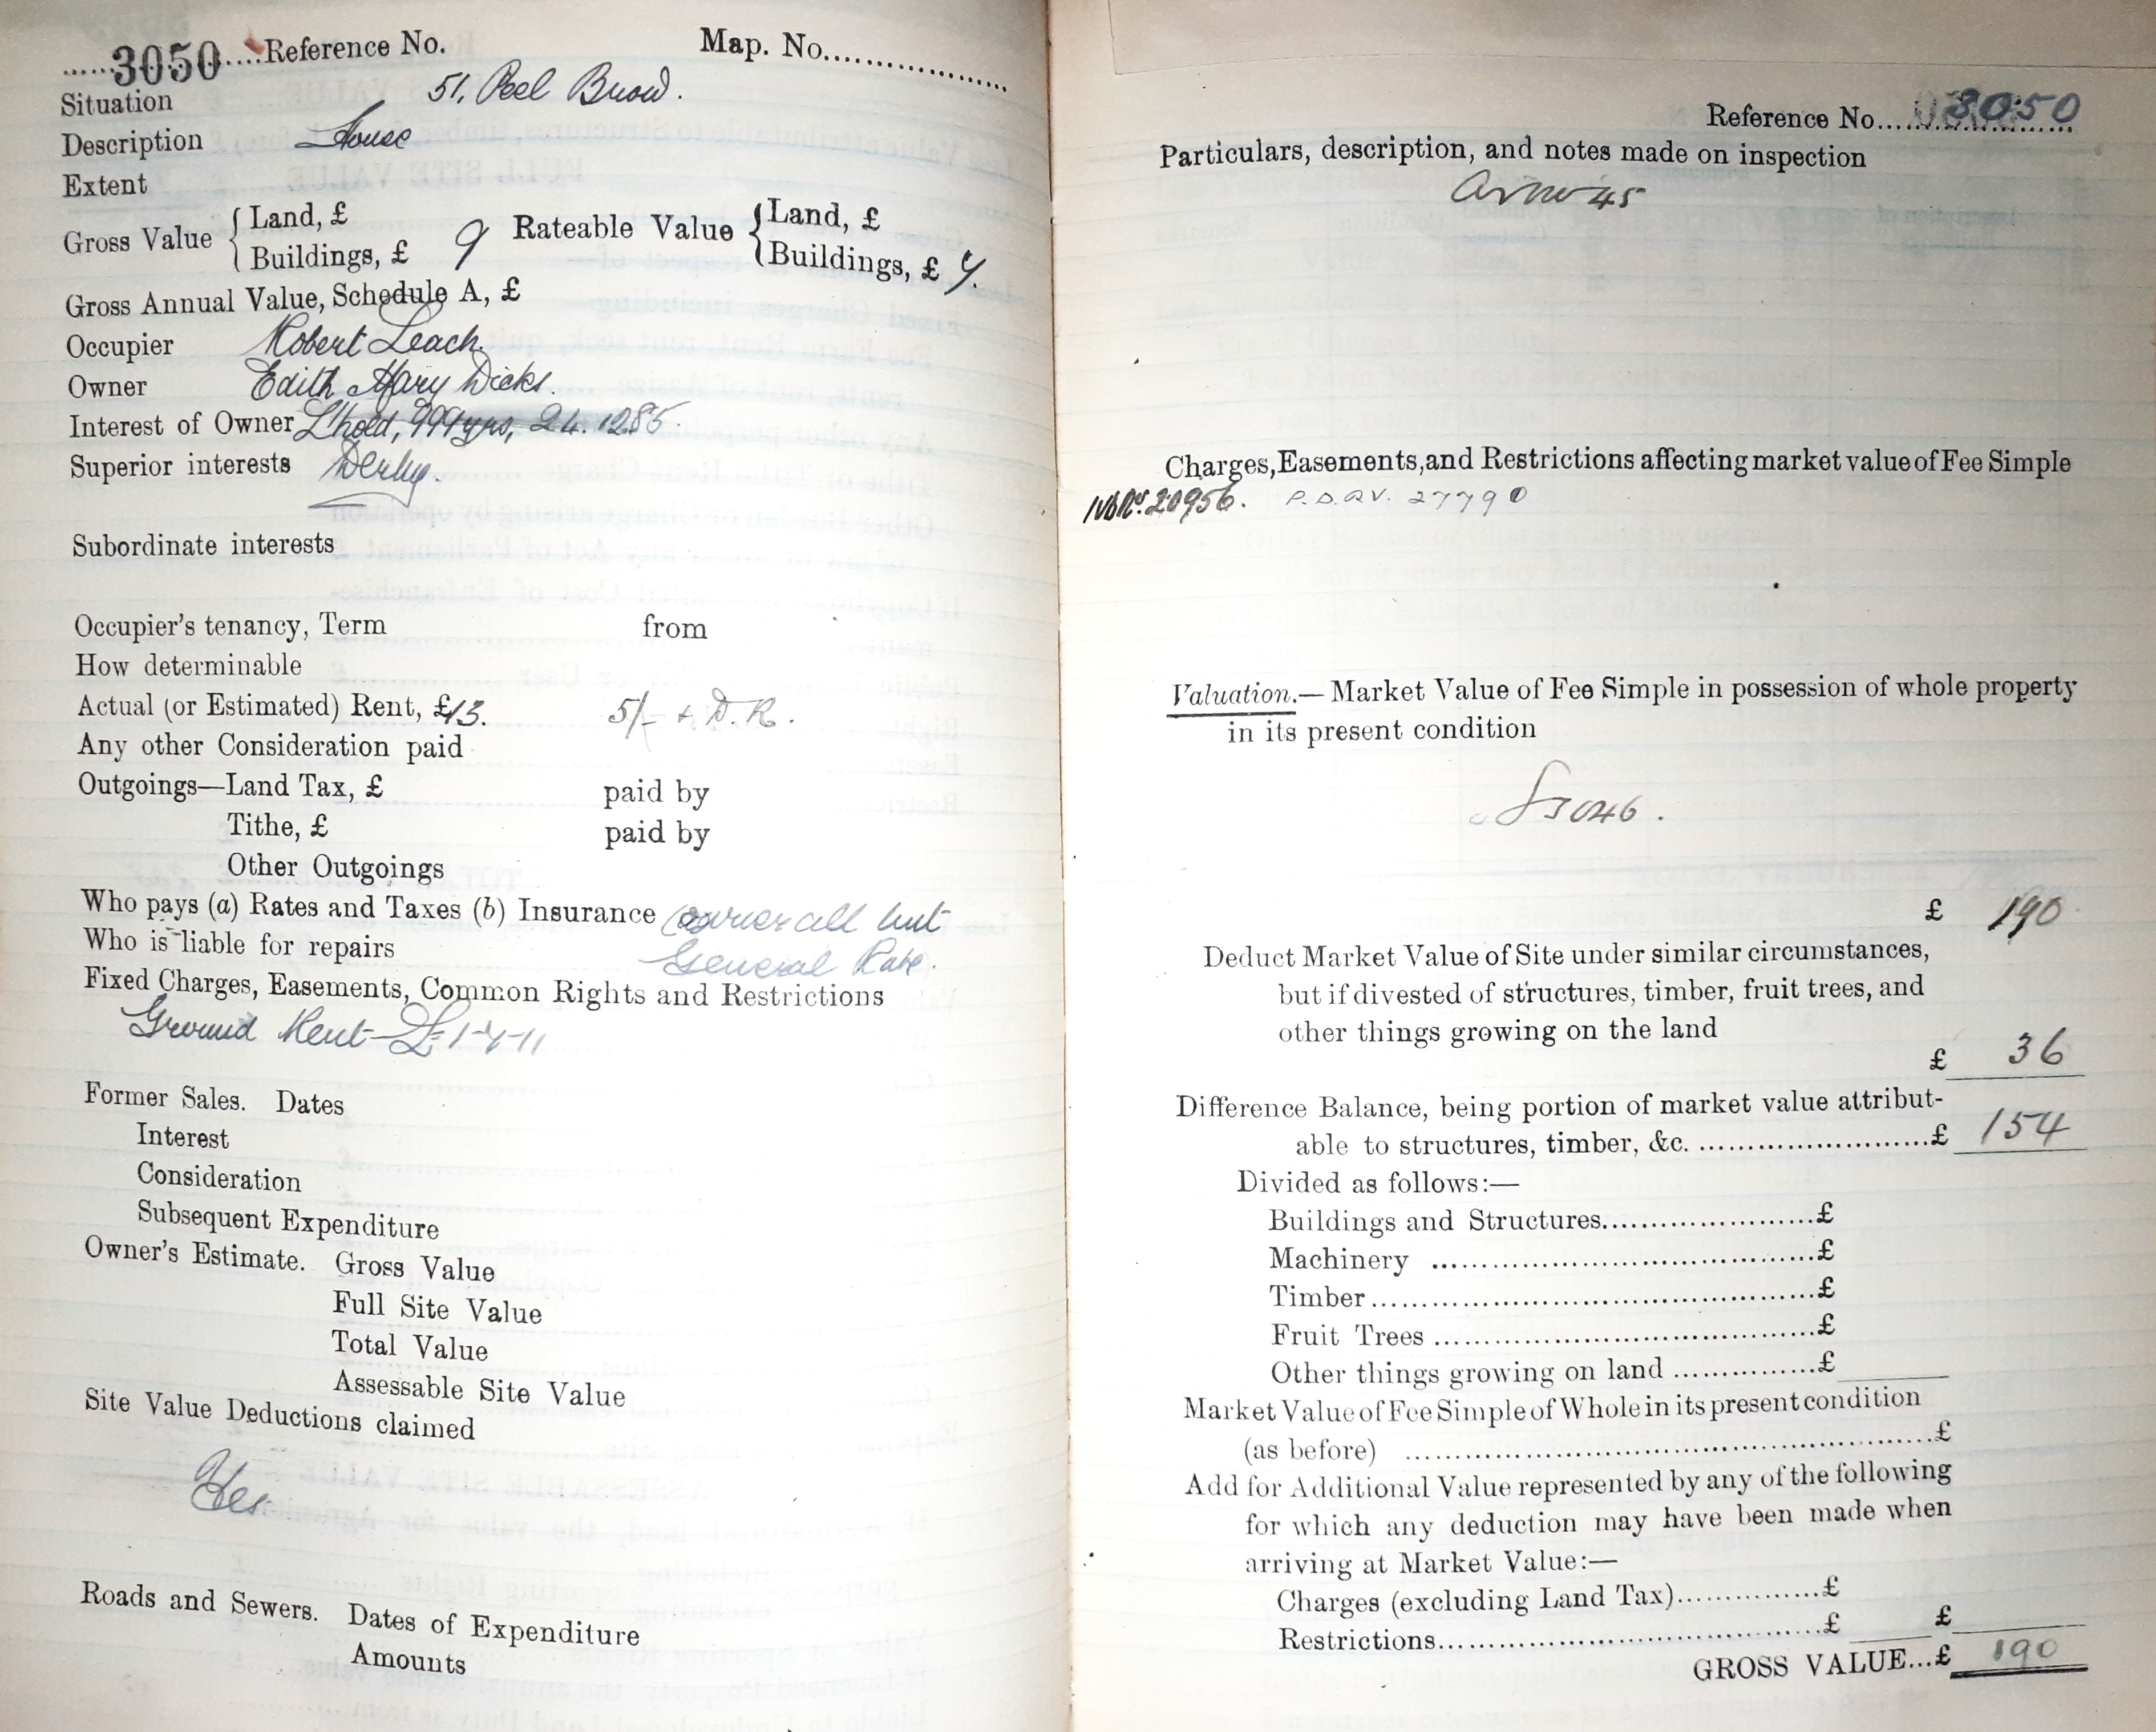 3050 Reference No. Map. No.
Situation 51, Peel Brow.
Description House
Extent
Gross Value { Land, £ Rateable Value { Land, £
Buildings, £ 9 Buildings, £ 7.
Gross Annual Value, Schedule A, £
Occupier Robert Leach.
Owner Edith Mary Dicks.
Interest of Owner L'hold, 999 yrs, 24. 1285.
Superior interests Derby.
Subordinate interests
Occupier's tenancy, Term from
How determinable
Actual (or Estimated) Rent, £13. 5/- + D. R.
Any other Consideration paid
Outgoings—Land Tax, £ paid by
Tithe, £ paid by
Other Outgoings
Who pays (a) Rates and Taxes (b) Insurance owner all but
Who is liable for repairs General Rate.
Fixed Charges, Easements, Common Rights and Restrictions
Ground Rent £1-4-11
Former Sales. Dates
Interest
Consideration
Subsequent Expenditure
Owner's Estimate. Gross Value
Full Site Value
Total Value
Assessable Site Value
Site Value Deductions claimed
Yes.
Roads and Sewers. Dates of Expenditure
Amounts
Reference No. 3050
Particulars, description, and notes made on inspection
45
Charges, Easements, and Restrictions affecting market value of Fee Simple
20956. 27790
Valuation.— Market Value of Fee Simple in possession of whole property
in its present condition
£ 190
Deduct Market Value of Site under similar circumstances,
but if divested of structures, timber, fruit trees, and
other things growing on the land
£ 36
Difference Balance, being portion of market value attribut-
able to structures, timber, &c. £ 154
Divided as follows:—
Buildings and Structures £
Machinery £
Timber £
Fruit Trees £
Other things growing on land £
Market Value of Fee Simple of Whole in its present condition
(as before) £
Add for Additional Value represented by any of the following
for which any deduction may have been made when
arriving at Market Value:—
Charges (excluding Land Tax) £
Restrictions £ £
GROSS VALUE...£ 190